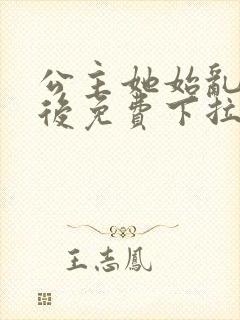 公主她始亂
後免費下拉
王志鳳